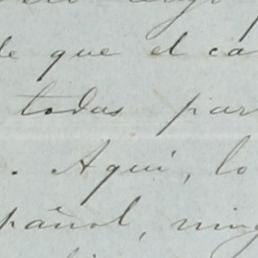 de que el ca
todas par
. Aquí, lo
pañol, ning